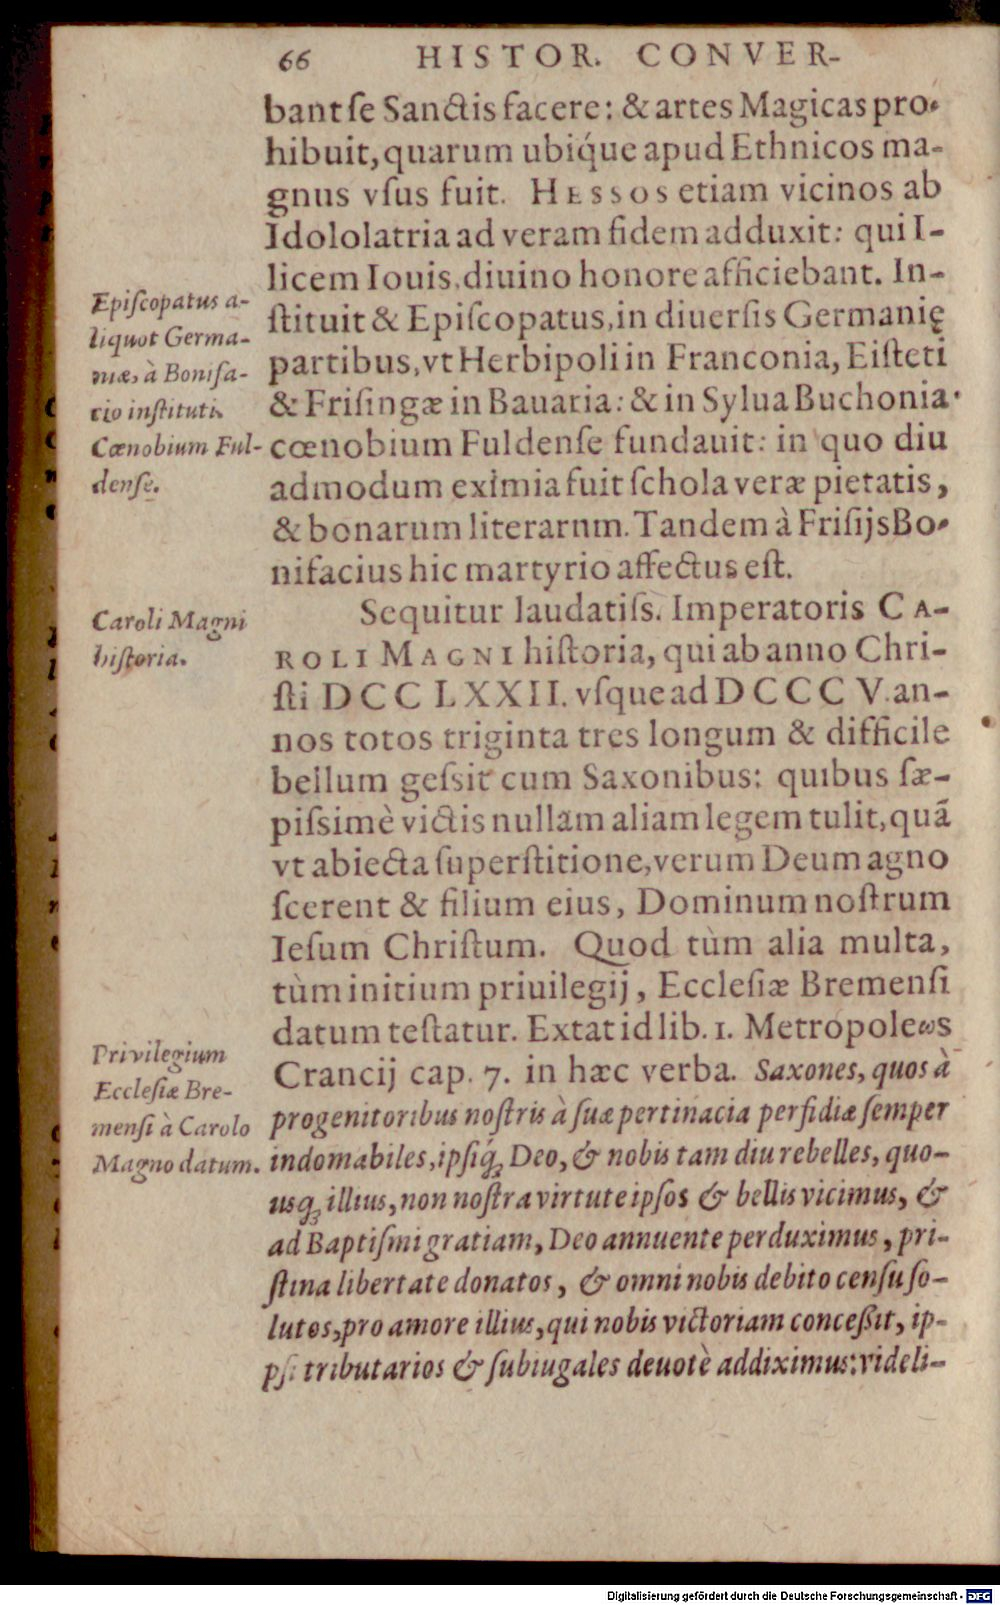 66 HISTOR. CONVER-
bant ſe Sanctis facere: & artes Magicas pro-
hibuit, quarum ubiq́ue apud Ethnicos ma-
gnus vſus fuit. HESSOS etiam vicinos ab
Idololatria ad veram fidem adduxit: qui I-
licem Iouis, diuino honore afficiebant. In-
ſtituit & Epiſcopatus, in diuerſis Germanię
partibus, vt Herbipoli in Franconia, Eiſteti
& Friſingæ in Bauaria: & in Sylua Buchonia
cœnobium Fuldenſe fundauit: in quo diu
admodum eximia fuit ſchola veræ pietatis,
& bonarum literarum. Tandem à Friſijs Bo-
nifacius hic martyrio affectus eſt.
Epiſcopatus a-
liquot Germa-
niæ, à Bonifa-
cio inſtituti.
Cœnobium Ful-
denſe.
Sequitur laudatiſs. Imperatoris CA-
ROLI MAGNI hiſtoria, qui ab anno Chri-
ſti DCCLXXII. vſque ad DCCCV. an-
nos totos triginta tres longum & difficile
bellum geſsit cum Saxonibus: quibus ſæ-
piſsimè victis nullam aliam legem tulit, quã
vt abiecta ſuperſtitione, verum Deum agno
ſcerent & filium eius, Dominum noſtrum
Ieſum Chriſtum. Quod tùm alia multa,
tùm initium priuilegij, Eccleſiæ Bremenſi
datum teſtatur. Extat id lib. 1. Metropoleωs
Crancij cap. 7. in hæc verba. Saxones, quos à
progenitoribus noſtris à ſuæ pertinacia perfidiæ ſemper
indomabiles, ipſiq́ꝫ Deo, & nobis tam diu rebelles, quo-
usqꝫ illius, non noſtra virtute ipſos & bellis vicimus, &
ad Baptiſmi gratiam, Deo annuente perduximus, pri-
ſtina libertate donatos, & omni nobis debito cenſu ſo-
lutos, pro amore illius, qui nobis victoriam conceßit, ip-
pſi tributarios & ſubiugales deuotè addiximus: videli-
Caroli Magni
hiſtoria.
Privilegium
Eccleſiæ Bre-
menſi à Carolo
Magno datum.
Digitalisierung gefördert durch die Deutsche Forschungsgemeinschaft - DFG